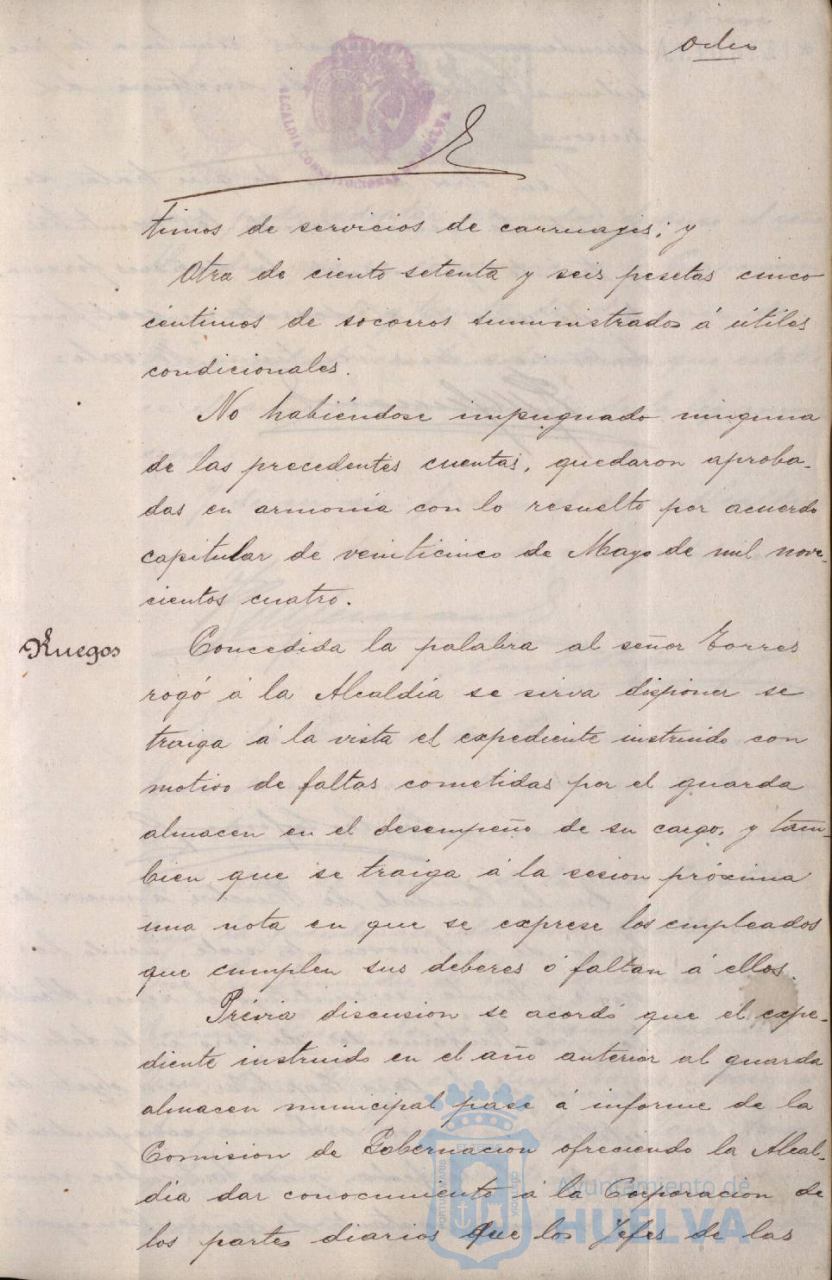 ocho
ALCALDIA CONSTITUCIONAL DE HUELVA
timos de servicios de carruages; y
Otra de ciento setenta y seis pesetas cinco
céntimos de socorros suministrados á útiles
condicionales.
No habiéndose impugnado ninguna
de las precedentes cuentas, quedaron aproba-
das en armonía con lo resuelto por acuerdo
capitular de veinticinco de Mayo de mil nove-
cientos cuatro.
Ruegos
Concedida la palabra al señor Torres
rogó á la Alcaldía se sirva disponer se
traiga á la vista el expediente instruido con
motivo de faltas cometidas por el guarda
almacen en el desempeño de su cargo, y tam-
bien que se traiga á la sesion próxima
una nota en que se exprese los empleados
que cumplen sus deberes ó faltan á ellos.
Prévia discusion se acordó que el expe-
diente instruido en el año anterior al guarda
almacen municipal pase á informe de la
Comision de Gobernacion ofreciendo la Alcal-
día dar conocimiento á la Corporacion de
los partes diarios que los Jefes de las
Ayuntamiento de
HUELVA